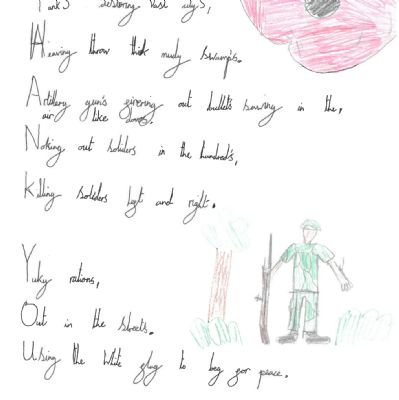 Tanks destoring
Weaving throw thick mudy swamps.
Artillery gun's out bullets in the,
air like doves.
Noking out soliders in the hundreds,
Killing soliders left and right.
Yuky rations,
Out in the streets.
Using the white flag to beg for peace.